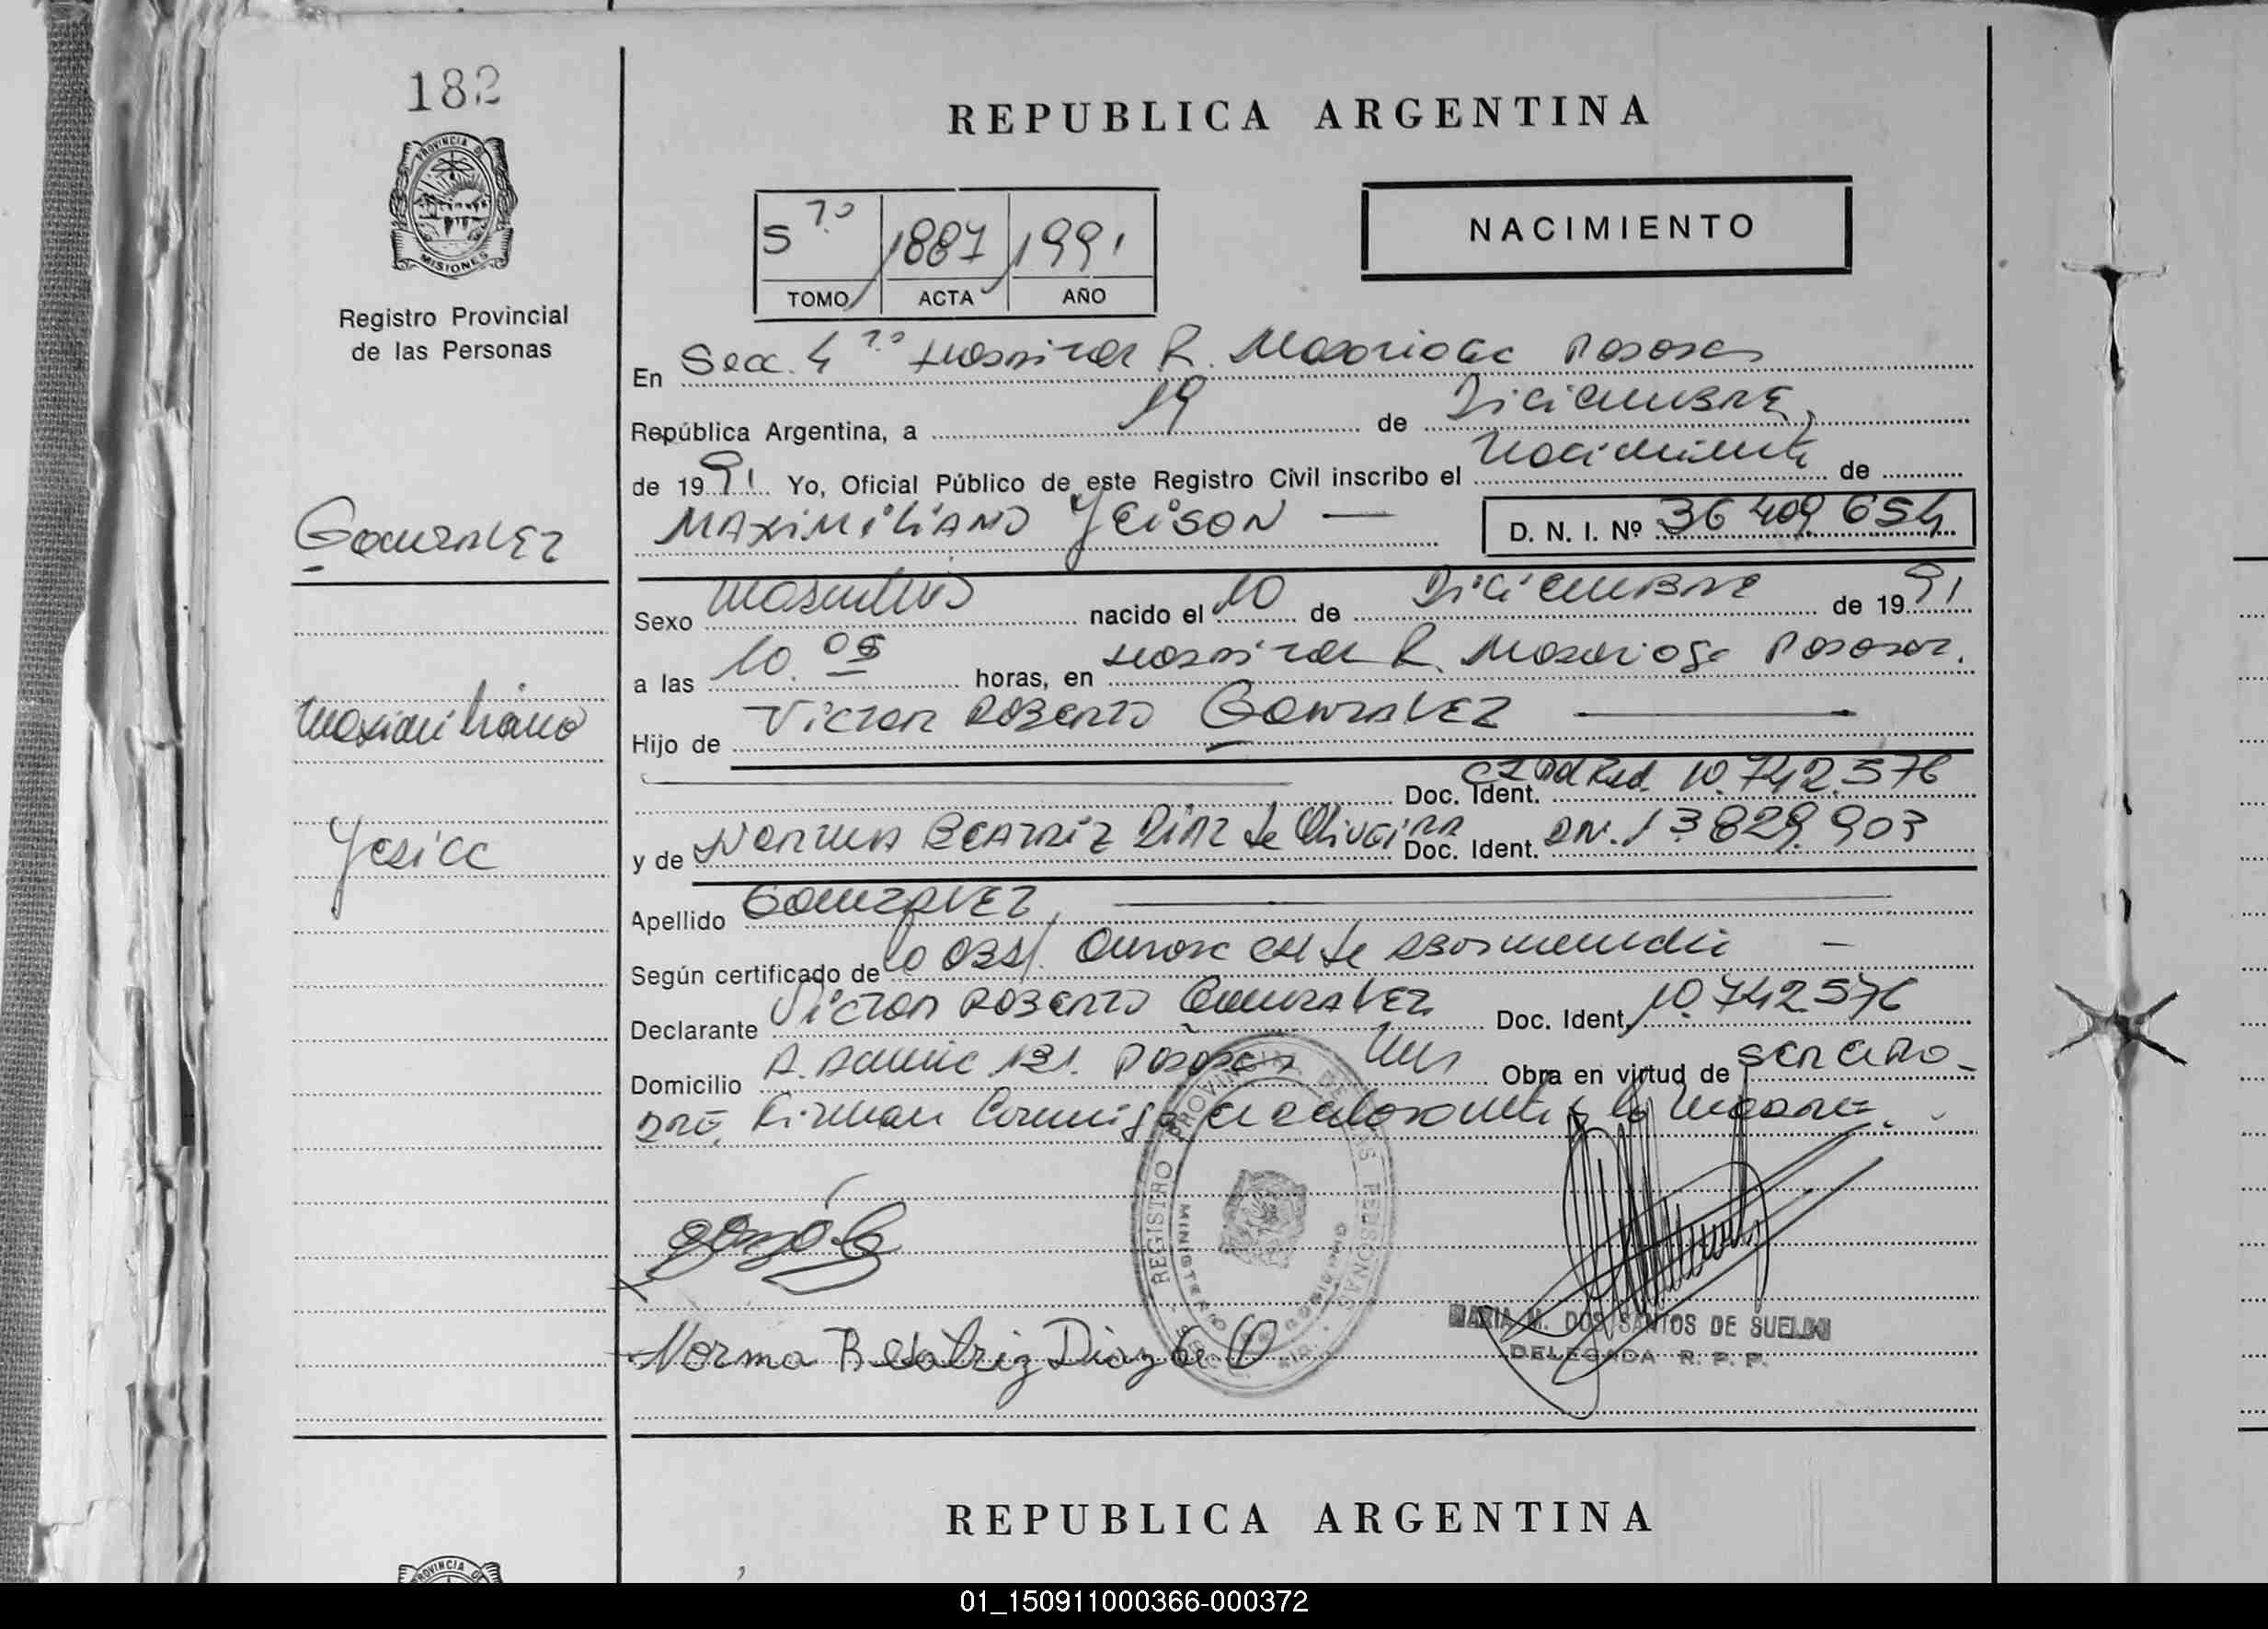 182
PROVINCIA DE
MISIONES
Registro Provincial
de las Personas
Gonzalez
Maximiliano
REPUBLICA ARGENTINA
NACIMIENTO
5 to 1887 1991
TOMO ACTA AÑO
En Secc. 4 ta Hospital R. Madariaga Posadas
República Argentina, a 19 de Diciembre
de 1991 Yo, Oficial Público de este Registro Civil inscribo el Nacimiento de
MAXIMILIANO YEISON — D. N. I. Nº 36 409 654
Sexo Masculino nacido el 10 de Diciembre de 1991
a las 10. 05 horas, en Hospital R. Madariaga Posadas.
Hijo de Victor Roberto Gonzalez
Doc. Ident. 10.742.576
y de Norma Beatriz Diaz de Oliveira Doc. Ident. DN. 13 829 903
Apellido Gonzalez,
Según certificado de la Obst.
Declarante Victor Roberto Gonzalez Doc. Ident, 10.742.576
Domicilio 131. Posadas Obra en virtud de ser ciro_
dre, Firman Conmigo el y la Madre.
REGISTRO PROVINCIAL DE LAS PERSONAS
MINISTERIO DE GOBIERNO
Norma Beatriz Diaz de O
MARIA M. DOS SANTOS DE SUELDO
DELEGADA R. P. P.
REPUBLICA ARGENTINA
PROVINCIA
01_150911000366-000372